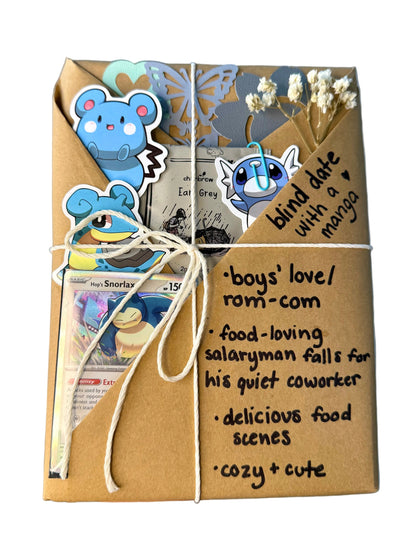 Earl Grey
blind date
with a
manga
•boys' love/
rom-com
•food-loving
salaryman falls for
his quiet coworker
•delicious food
scenes
•cozy + cute
Hop's Snorlax
150